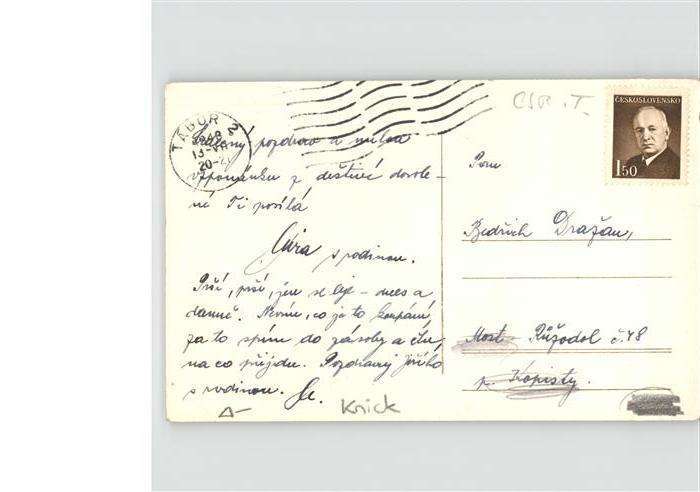 TÁBOR 2
1948
13.VII
20-21
ČSR T.
ČESKOSLOVENSKO
1.50
Srdečný pozdrav a milou
vzpomínku z deštivé dovole-
né Ti posílá
s rodinou.
Prší, prší, jen se lije – dnes a
denně. Nevím, co je to koupání,
za to spím do zásoby a čtu,
na co přijdu. Pozdravuj
s rodinou.
Pan
Bedřich Dražan,
Most Růžodol č. 48
p. Kopisty.
Knick